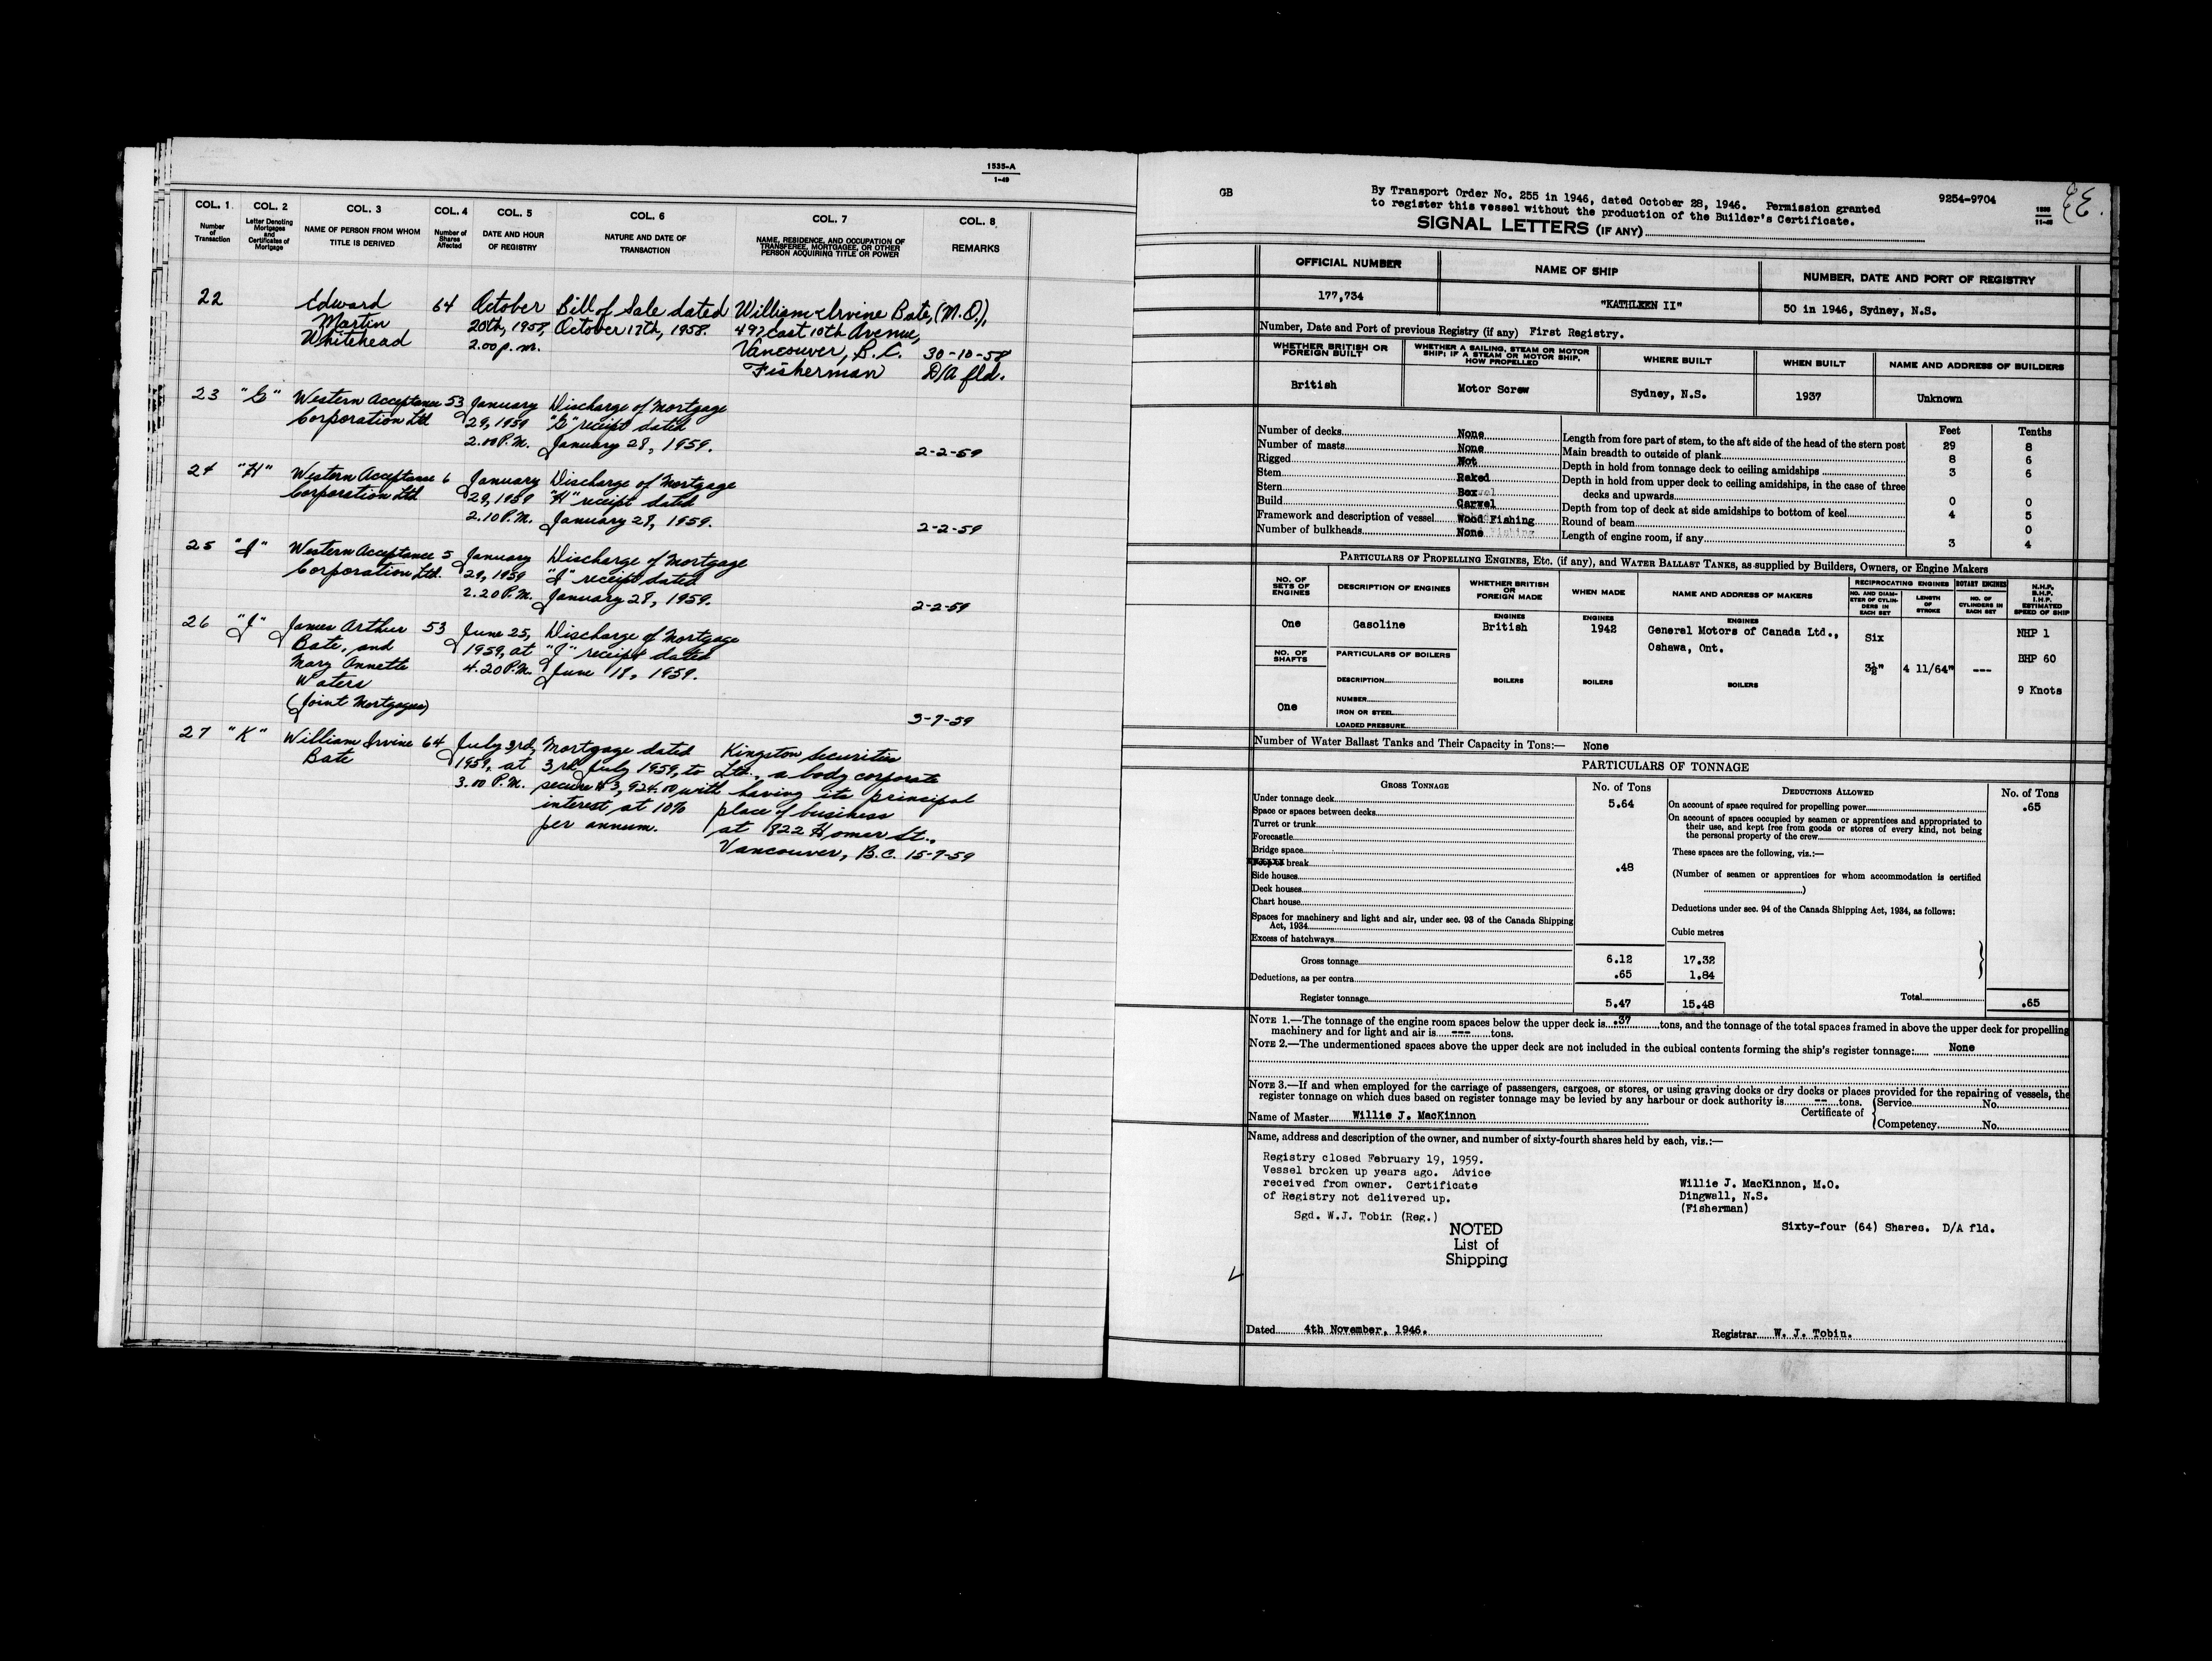 1535-A
1-49
COL. 1 COL. 2 COL. 3 COL. 4 COL. 5 COL. 6 COL. 7 COL. 8
Number of Transaction
Letter Denoting Mortgages and Certificates of Mortgage
NAME OF PERSON FROM WHOM TITLE IS DERIVED
Number of Shares Affected
DATE AND HOUR OF REGISTRY
NATURE AND DATE OF TRANSACTION
NAME, RESIDENCE, AND OCCUPATION OF TRANSFEREE, MORTGAGEE, OR OTHER PERSON ACQUIRING TITLE OR POWER
REMARKS
22 Edward 64 October Bill of Sale dated William Irvine Bate, (M.O.),
Martin 20th, 1958, October 17th, 1958. 492 East 10th Avenue,
Whitehead 2.00 p.m. Vancouver, B.C. 30-10-58
Fisherman D/A fld.
23 "G" Western Acceptance 53 January Discharge of Mortgage
Corporation Ltd 29, 1959 "G" receipt dated
2.00 P.M. January 28, 1959. 2-2-59
24 "H" Western Acceptance 6 January Discharge of Mortgage
Corporation Ltd 29, 1959 "H" receipt dated
2.10 P.M. January 28, 1959. 2-2-59
25 "I" Western Acceptance 5 January Discharge of Mortgage
Corporation Ltd. 29, 1959 "I" receipt dated
2.20 P.M. January 28, 1959. 2-2-59
26 "J" James Arthur 53 June 25, Discharge of Mortgage
Bate, and 1959, at "J" receipt dated
Mary Annette 4.20 P.M. June 18, 1959.
Waters
(Joint Mortgagees) 3-7-59
27 "K" William Irvine 64 July 3rd, Mortgage dated Kingston Securities
Bate 1959, at 3rd July 1959, to Ltd., a body corporate
3.00 P.M. secure $3,924.00 with having its principal
interest at 10% place of business
per annum. at 822 Homer St.,
Vancouver, B.C. 15-7-59
GB
By Transport Order No. 255 in 1946, dated October 28, 1946. Permission granted
to register this vessel without the production of the Builder's Certificate.
9254-9704
SIGNAL LETTERS (IF ANY)
OFFICIAL NUMBER NAME OF SHIP NUMBER, DATE AND PORT OF REGISTRY
177,734 "KATHLEEN II" 50 in 1946, Sydney, N.S.
Number, Date and Port of previous Registry (if any) First Registry.
WHETHER BRITISH OR FOREIGN BUILT
WHETHER A SAILING, STEAM OR MOTOR SHIP; IF A STEAM OR MOTOR SHIP, HOW PROPELLED
WHERE BUILT WHEN BUILT NAME AND ADDRESS OF BUILDERS
British Motor Screw Sydney, N.S. 1937 Unknown
Feet Tenths
Number of decks None Length from fore part of stem, to the aft side of the head of the stern post 29 8
Number of masts None Main breadth to outside of plank 8 6
Rigged Not Depth in hold from tonnage deck to ceiling amidships 3 6
Stem Raked Depth in hold from upper deck to ceiling amidships, in the case of three
Stern Box decks and upwards 0 0
Build Carvel Depth from top of deck at side amidships to bottom of keel 4 5
Framework and description of vessel Wood Fishing Round of beam 0
Number of bulkheads None Length of engine room, if any 3 4
PARTICULARS OF PROPELLING ENGINES, ETC. (if any), and WATER BALLAST TANKS, as supplied by Builders, Owners, or Engine Makers
NO. OF SETS OF ENGINES
DESCRIPTION OF ENGINES
WHETHER BRITISH OR FOREIGN MADE
WHEN MADE
NAME AND ADDRESS OF MAKERS
RECIPROCATING ENGINES ROTARY ENGINES
NO. AND DIAMETER OF CYLINDERS IN EACH SET
LENGTH OF STROKE
NO. OF CYLINDERS IN EACH SET
N.H.P. B.H.P. I.H.P. ESTIMATED SPEED OF SHIP
ENGINES ENGINES ENGINES
One Gasoline British 1942 General Motors of Canada Ltd., Six NHP 1
Oshawa, Ont.
NO. OF SHAFTS PARTICULARS OF BOILERS 3½" 4 11/64" --- BHP 60
DESCRIPTION BOILERS BOILERS BOILERS
9 Knots
NUMBER
One IRON OR STEEL
LOADED PRESSURE
Number of Water Ballast Tanks and Their Capacity in Tons:— None
PARTICULARS OF TONNAGE
GROSS TONNAGE No. of Tons DEDUCTIONS ALLOWED No. of Tons
Under tonnage deck 5.64 On account of space required for propelling power .65
Space or spaces between decks On account of spaces occupied by seamen or apprentices and appropriated to
Turret or trunk their use, and kept free from goods or stores of every kind, not being
Forecastle the personal property of the crew
Bridge space These spaces are the following, viz.:—
break .48
Side houses (Number of seamen or apprentices for whom accommodation is certified
Deck houses )
Chart house Deductions under sec. 94 of the Canada Shipping Act, 1934, as follows:
Spaces for machinery and light and air, under sec. 93 of the Canada Shipping
Act, 1934 Cubic metres
Excess of hatchways
Gross tonnage 6.12 17.32
Deductions, as per contra .65 1.84
Register tonnage 5.47 15.48 Total .65
NOTE 1.—The tonnage of the engine room spaces below the upper deck is .37 tons, and the tonnage of the total spaces framed in above the upper deck for propelling
machinery and for light and air is --- tons.
NOTE 2.—The undermentioned spaces above the upper deck are not included in the cubical contents forming the ship's register tonnage: None
NOTE 3.—If and when employed for the carriage of passengers, cargoes, or stores, or using graving docks or dry docks or places provided for the repairing of vessels, the
register tonnage on which dues based on register tonnage may be levied by any harbour or dock authority is -- tons.
Name of Master Willie J. MacKinnon Certificate of Service No.
Competency No.
Name, address and description of the owner, and number of sixty-fourth shares held by each, viz.:—
Registry closed February 19, 1959.
Vessel broken up years ago. Advice
received from owner. Certificate
of Registry not delivered up.
Sgd. W.J. Tobin (Reg.)
Willie J. MacKinnon, M.O.
Dingwall, N.S.
(Fisherman)
Sixty-four (64) Shares. D/A fld.
NOTED
List of
Shipping
Dated 4th November, 1946. Registrar W. J. Tobin.